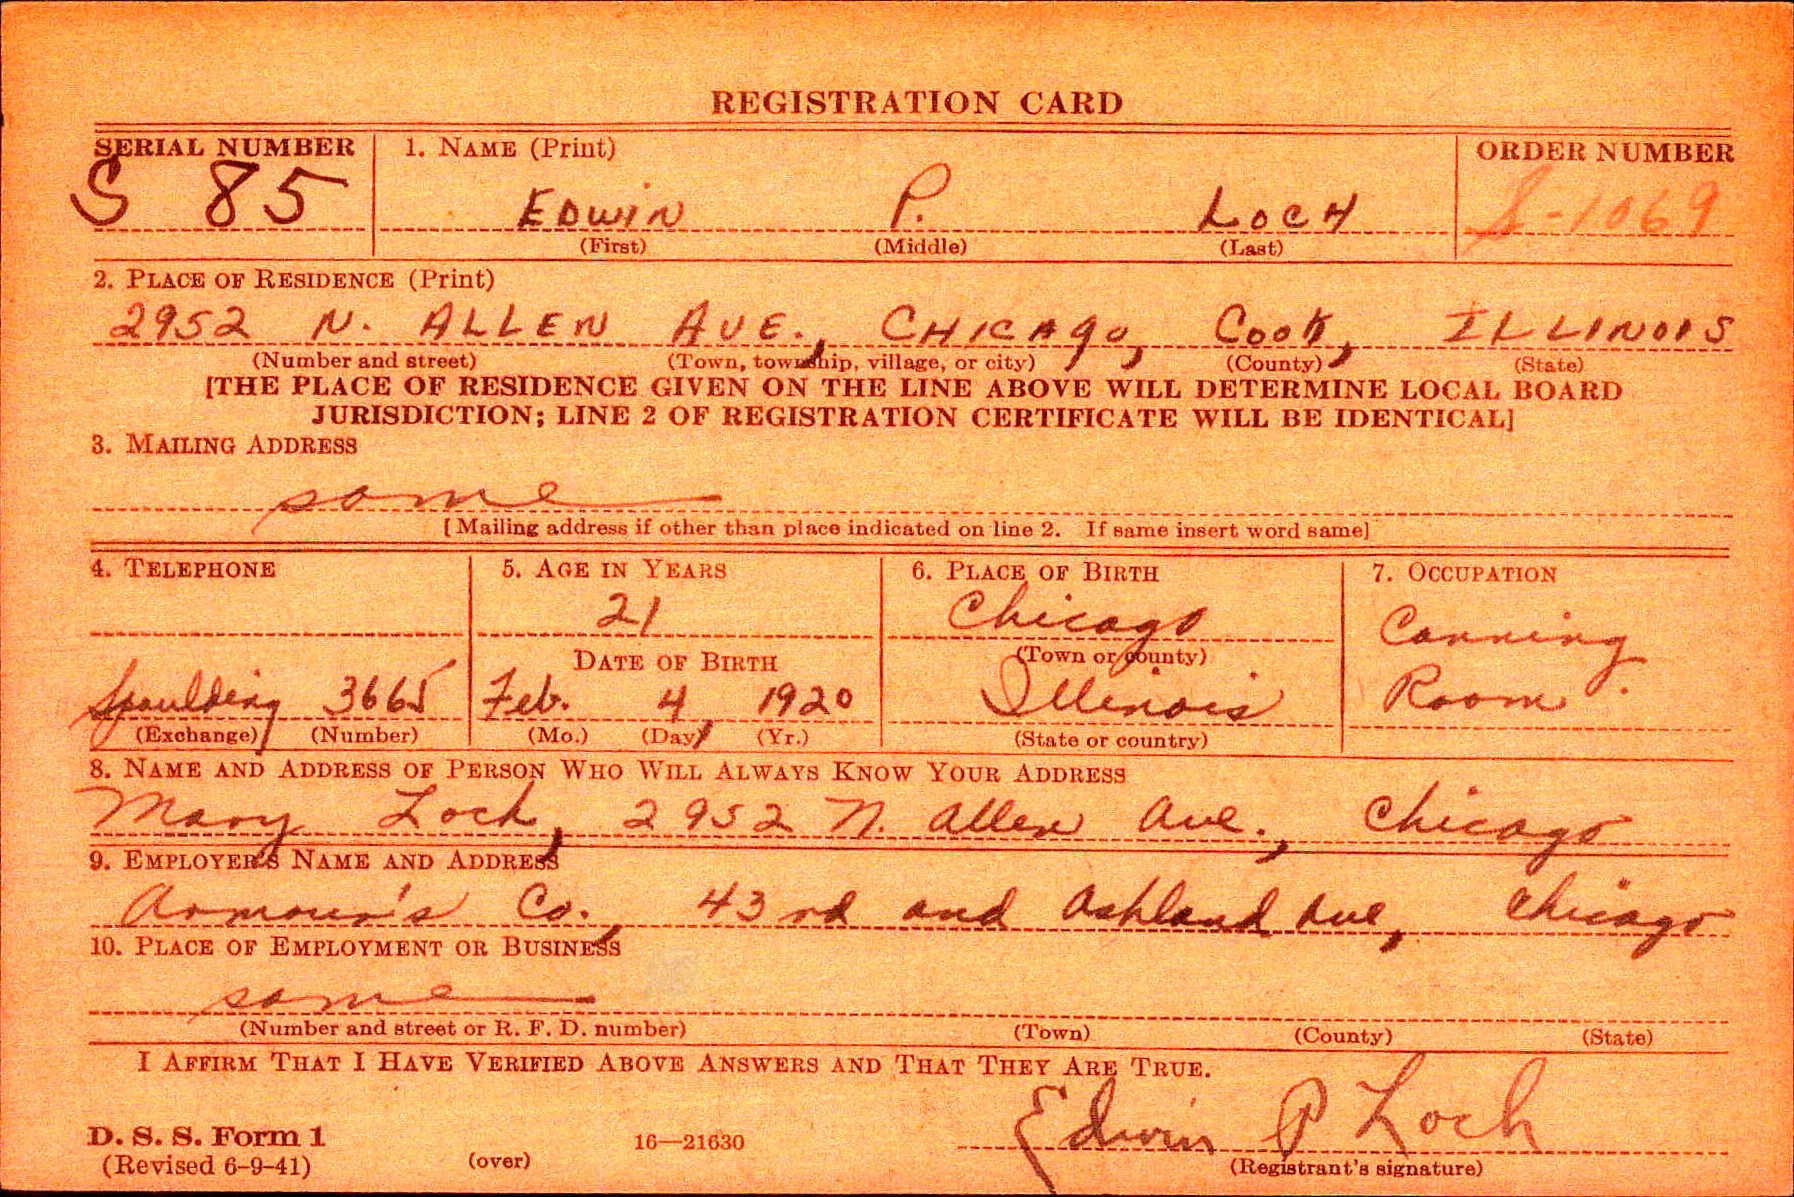 REGISTRATION CARD
SERIAL NUMBER 1. NAME (Print) ORDER NUMBER
S 85 EDWIN P. LOCH S-1069
(First) (Middle) (Last)
2. PLACE OF RESIDENCE (Print)
2952 N. ALLEN AVE., CHICAgo, COOK, ILLINOIS
(Number and street) (Town, township, village, or city) (County) (State)
[THE PLACE OF RESIDENCE GIVEN ON THE LINE ABOVE WILL DETERMINE LOCAL BOARD
JURISDICTION; LINE 2 OF REGISTRATION CERTIFICATE WILL BE IDENTICAL]
3. MAILING ADDRESS
same
[Mailing address if other than place indicated on line 2. If same insert word same]
4. TELEPHONE 5. AGE IN YEARS 6. PLACE OF BIRTH 7. OCCUPATION
21 Chicago Canning
DATE OF BIRTH (Town or county)
Spaulding 3665 Feb. 4, 1920 Illinois Room.
(Exchange) (Number) (Mo.) (Day) (Yr.) (State or country)
8. NAME AND ADDRESS OF PERSON WHO WILL ALWAYS KNOW YOUR ADDRESS
Mary Loch, 2952 N. Allen Ave., Chicago
9. EMPLOYER'S NAME AND ADDRESS
Armour's Co., 43rd and Ashland Ave, Chicago
10. PLACE OF EMPLOYMENT OR BUSINESS
same
(Number and street or R. F. D. number) (Town) (County) (State)
I AFFIRM THAT I HAVE VERIFIED ABOVE ANSWERS AND THAT THEY ARE TRUE.
Edwin P Loch
D. S. S. Form 1 16—21630
(Revised 6-9-41) (over) (Registrant's signature)